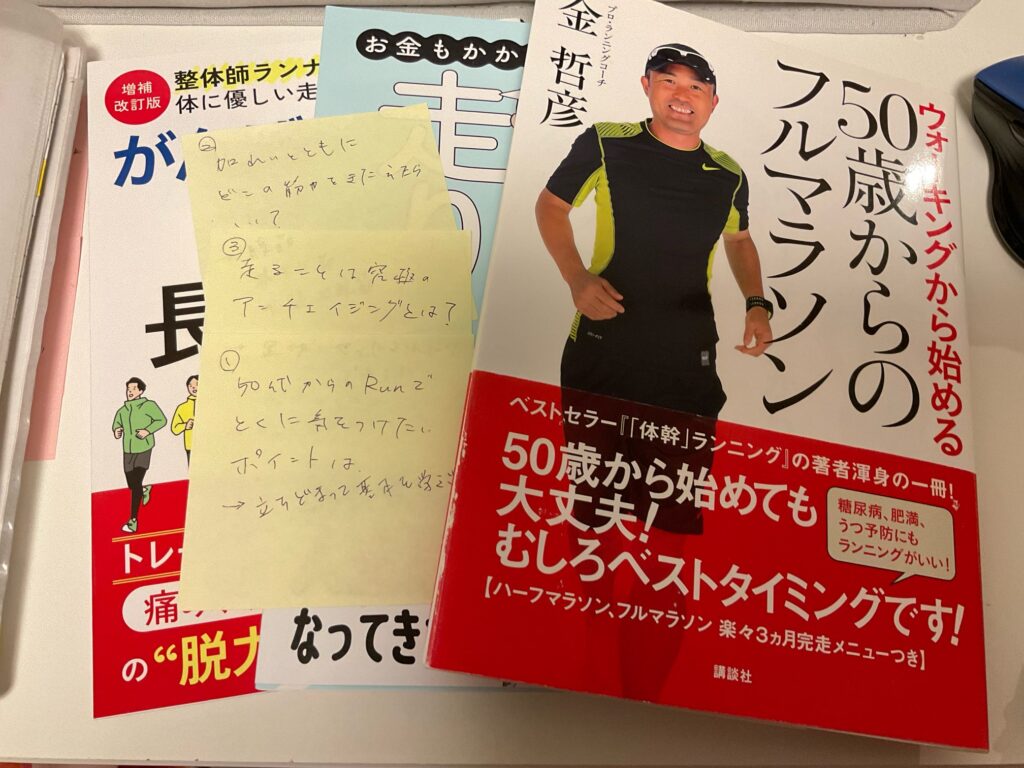 増補
改訂版
整体師ランナ
体に優しい走
がん
長
トレ
痛
の“脱力
お金もかか
走
なってき
②
加れいとともに
どこの筋力をきたえたら
いい?
③
走ることは究極の
アンチェイジングとは?
①
50代からのRunで
とくに気をつけたい
ポイントは
→立ちどまって基本を
プロ・ランニングコーチ
金 哲彦
ウォーキングから始める
50歳からの
フルマラソン
ベストセラー『「体幹」ランニング』の著者渾身の一冊!
50歳から始めても
大丈夫!
むしろベストタイミングです!
糖尿病、肥満、
うつ予防にも
ランニングがいい!
【ハーフマラソン、フルマラソン 楽々3ヵ月完走メニューつき】
講談社